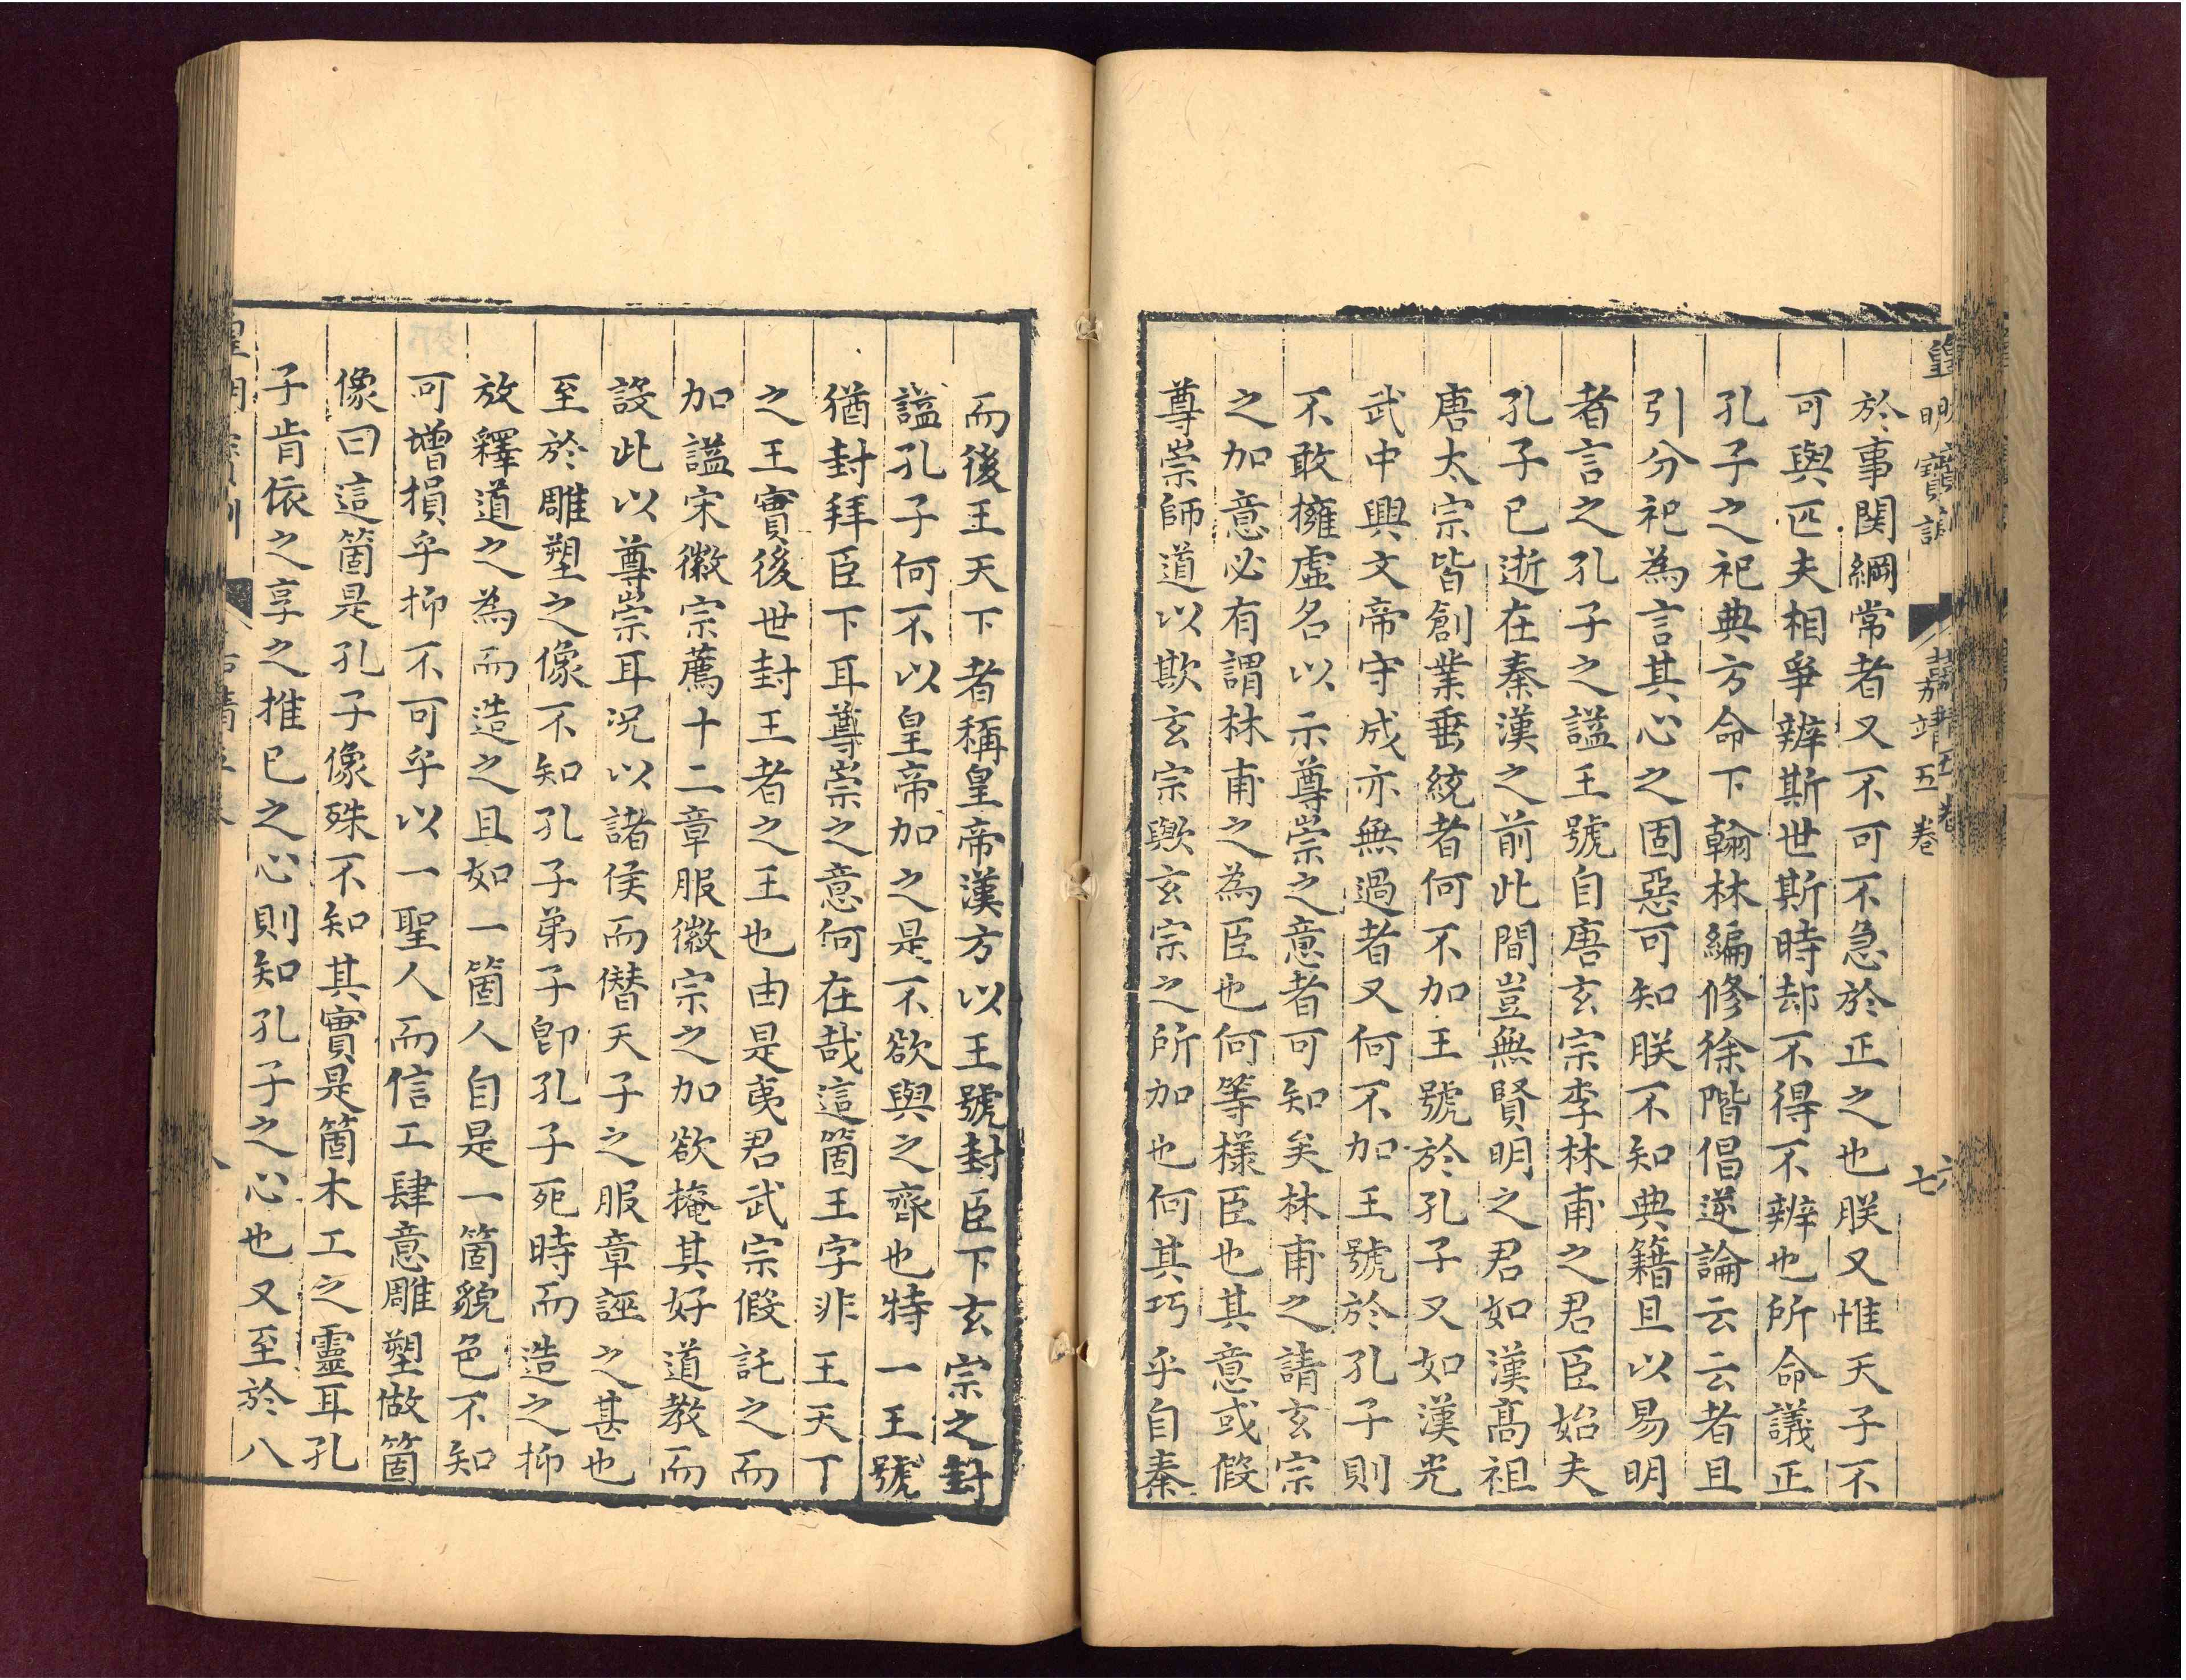 皇明寶訓 嘉靖五卷 七
於事関綱常者又不可不急於正之也朕又惟天子不
可與匹夫相爭辨斯世斯時却不得不辨也所命議正
孔子之祀典方命下翰林編修徐階倡逆論云云者且
引分祀為言其心之固惡可知朕不知典籍且以易明
者言之孔子之謚王號自唐玄宗李林甫之君臣始夫
孔子已逝在秦漢之前此間豈無賢明之君如漢髙祖
唐太宗皆創業垂統者何不加王號於孔子又如漢光
武中興文帝守成亦無過者又何不加王號於孔子則
不敢擁虛名以示尊崇之意者可知矣林甫之請玄宗
之加意必有謂林甫之為臣也何等樣臣也其意或假
尊崇師道以欺玄宗歟玄宗之所加也何其巧乎自秦
而後王天下者稱皇帝漢方以王號封臣下玄宗之封
謚孔子何不以皇帝加之是不欲與之齊也特一王號
猶封拜臣下耳尊崇之意何在哉這箇王字非王天下
之王實後世封王者之王也由是夷君武宗假託之而
加謚宋徽宗薦十二章服徽宗之加欲掩其好道教而
設此以尊崇耳况以諸侯而僭天子之服章誣之甚也
至於雕塑之像不知孔子弟子卽孔子死時而造之抑
放釋道之為而造之且如一箇人自是一箇貌色不知
可增損乎抑不可乎以一聖人而信工肆意雕塑做箇
像曰這箇是孔子像殊不知其實是箇木工之靈耳孔
子肯依之享之推已之心則知孔子之心也又至於八